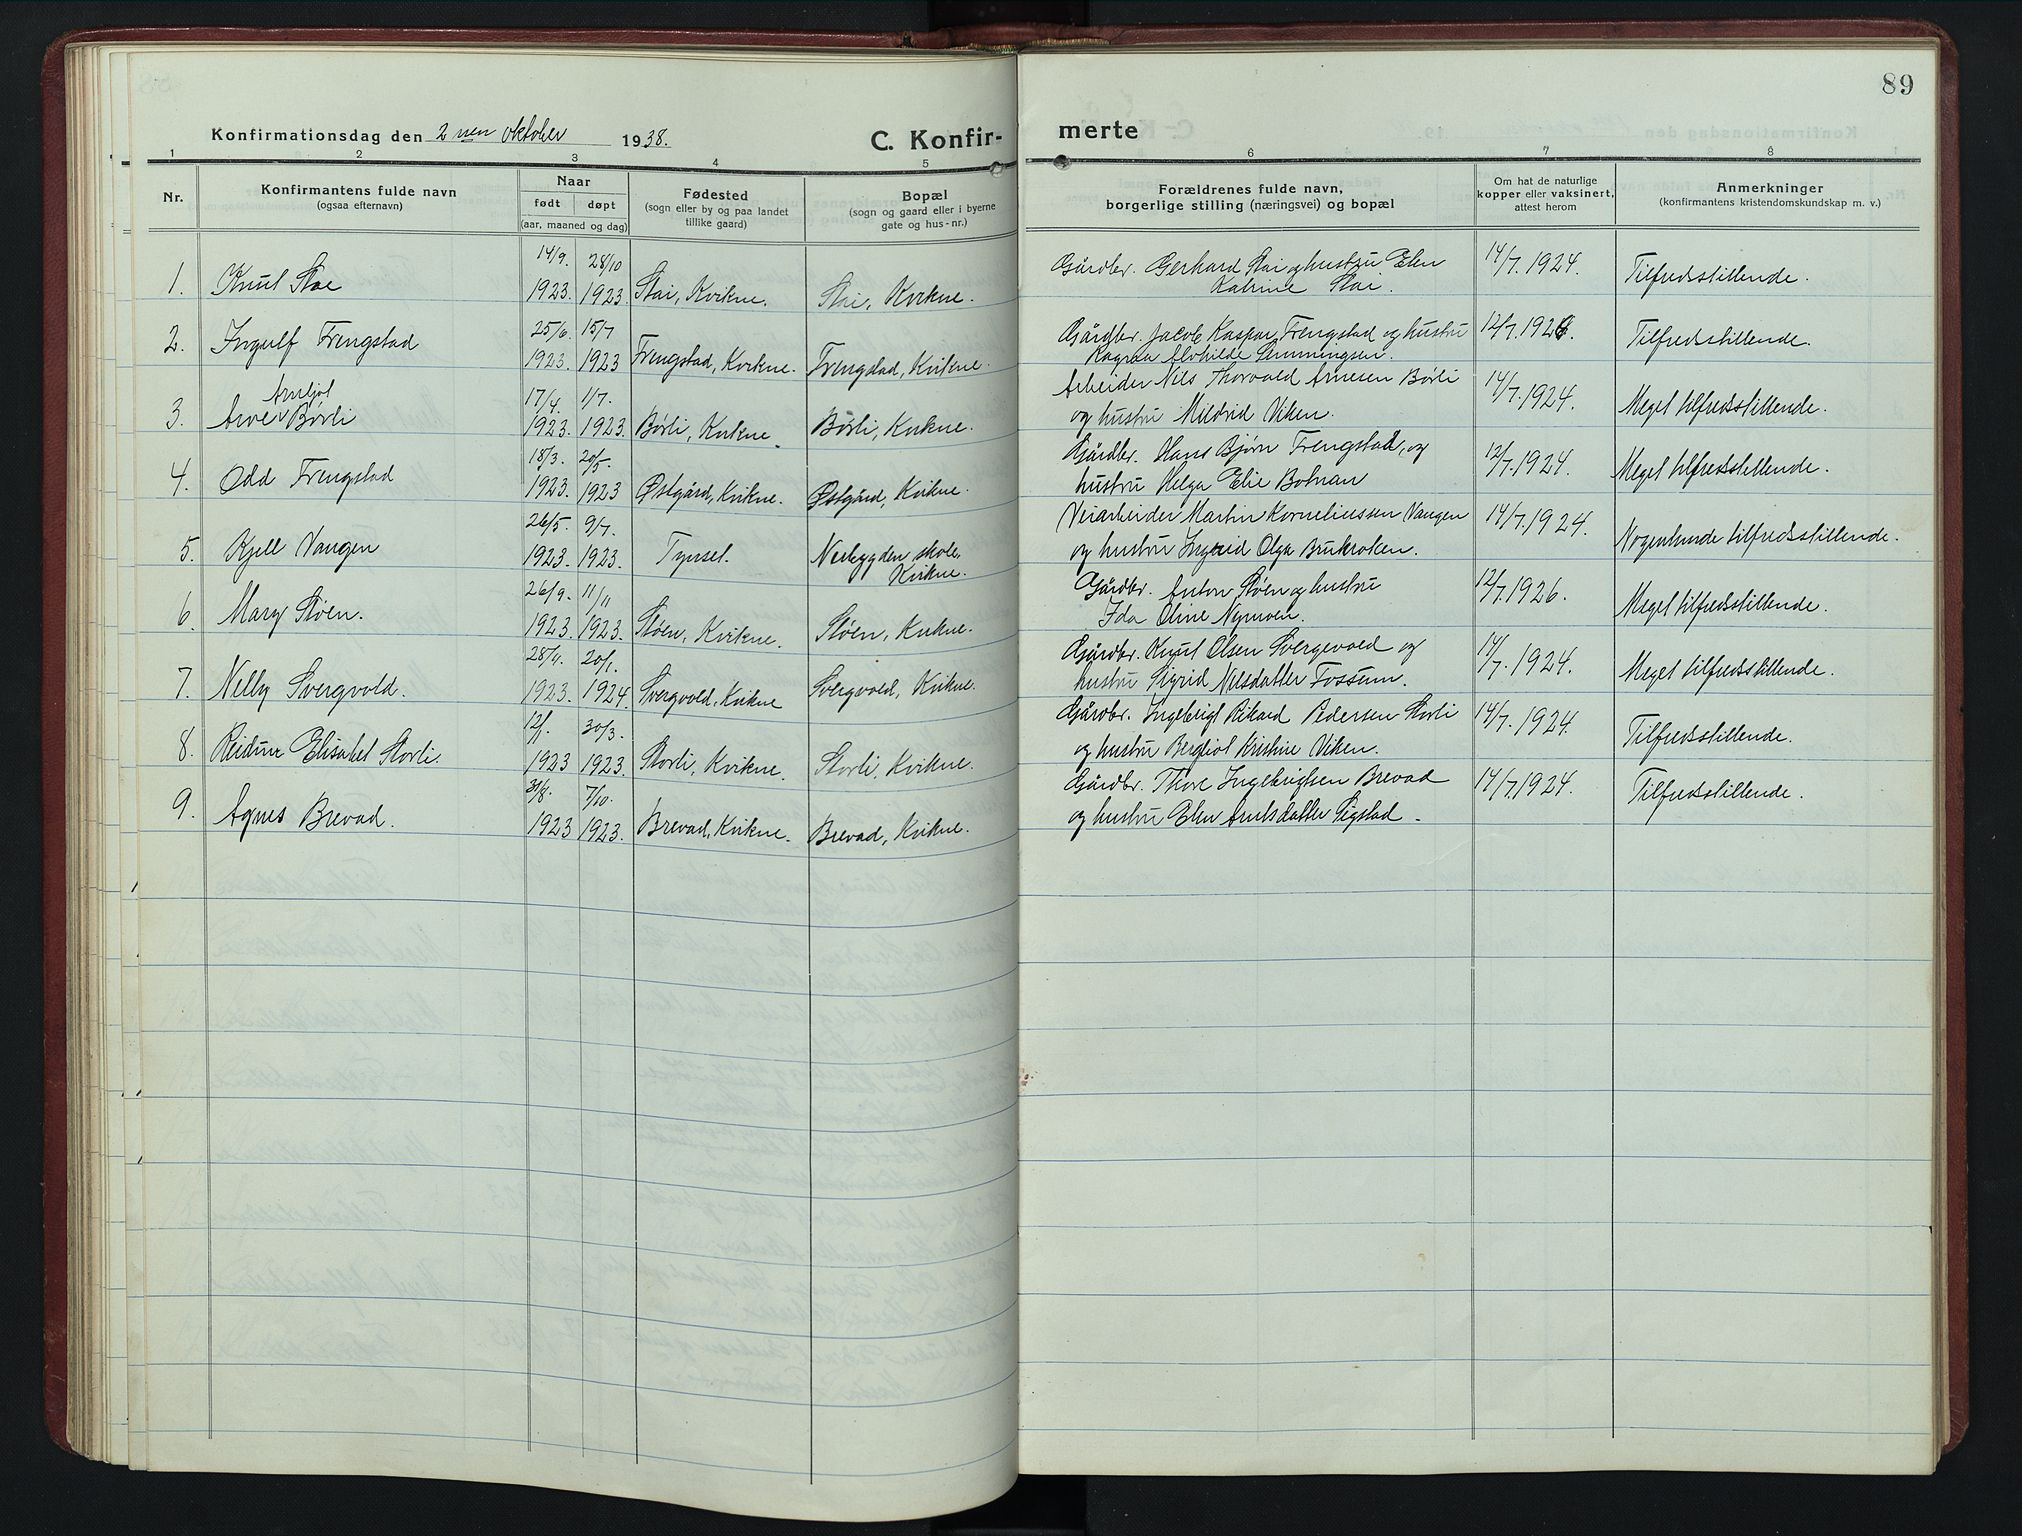 89
Konfirmationsdag den 2 nen oktober 1938.
C. Konfirmerte
1 2 3 4 5 6 7 8
Nr.
Konfirmantens fulde navn
(ogsaa efternavn)
Naar
født døpt
(aar, maaned og dag)
Fødested
(sogn eller by og paa landet
tillike gaard)
Bopæl
(sogn og gaard eller i byerne
gate og hus-nr.)
Forældrenes fulde navn,
borgerlige stilling (næringsvei) og bopæl
Om hat de naturlige
kopper eller vaksinert,
attest herom
Anmerkninger
(konfirmantens kristendomskundskap m. v.)
14/9. 28/10 Gårdbr. Gerhard Stai og hustru Elen 14/7. 1924.
1. Knut Stae 1923. 1923. Stai, Kvikne. Stai, Kvikne. Katrine Stai. Tilfredsstillende.
25/6. 15/7 Gårdbr. Jacob Kaspar Frengstad og hustru 12/7. 1926.
2. Ingulf Frengstad 1923. 1923 Frengstad, Kvikne. Frengstad, Kvikne. Ragna Alvhilde Simmingsen. Tilfredsstillende.
Arnljot 17/4. 1/7. Arbeider Nils Thorvald Arnesen Børli 14/7. 1924.
3. Arve Børli 1923. 1923. Børli, Kvikne. Børli, Kvikne. og hustru Mildrid Viken. Meget tilfredsstillende.
18/3. 20/5. Gårdbr. Hans Bjørn Frengstad, og 12/7. 1924.
4. Odd Frengstad 1923. 1923 Østgård, Kvikne. Østgård, Kvikne. hustru Helga Elie Botnan Meget tilfredsstillende.
26/5. 9/7. Veiarbeider Martin Korneliussen Vangen 14/7. 1924.
5. Kjell Vangen 1923. 1923. Tynset. Nerbygden skole, og hustru Ingrid Olga Brukroken. Nogenlunde tilfredsstillende.
Kvikne.
26/9. 11/11 Gårdbr. Anton Støen og hustru 12/7. 1926.
6. Mary Støen. 1923. 1923. Støen, Kvikne. Støen, Kvikne. Ida Oline Nymoen. Meget tilfredsstillende.
28/11. 20/1. Gårdbr. Knut Olsen Svergevold og 14/7. 1924.
7. Nelly Svergvold. 1923. 1924 Svergvold, Kvikne Svergvold, Kvikne. hustru Sigrid Nilsdatter Fossum. Meget tilfredsstillende.
12/1. 30/3. Gårdbr. Ingebrigt Rikard Pedersen Storli 14/7. 1924.
8. Reidun Elisabet Storli. 1923 1923. Storli, Kvikne. Storli, Kvikne. og hustru Bergliot Kristine Viken. Tilfredsstillende.
31/8. 7/10. Gårdbr. Thore Ingebrigtsen Brevad 14/7. 1924.
9. Agnes Brevad. 1923 1923. Brevad, Kvikne. Brevad, Kvikne. og hustru Elen Arntsdatter Sigstad. Tilfredsstillende.